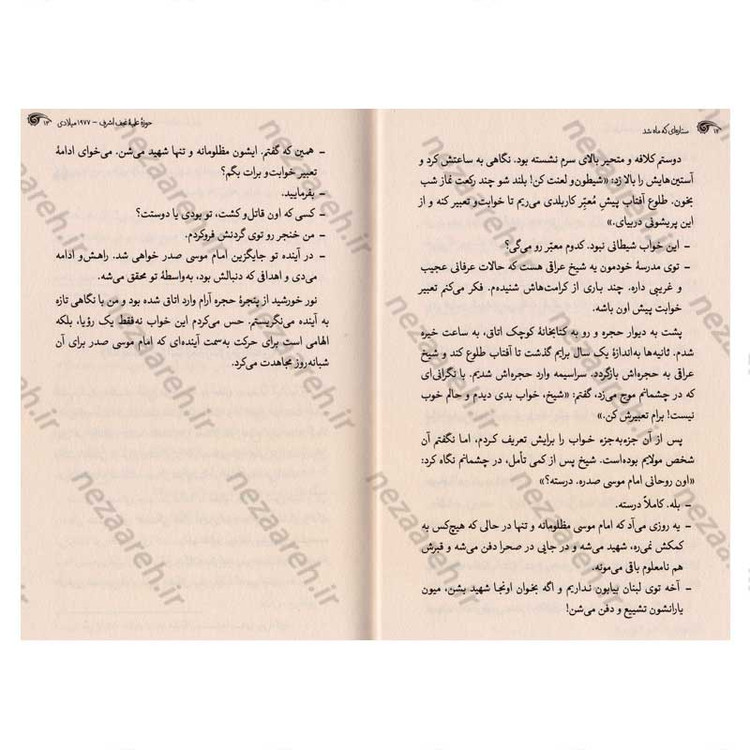 ۱۲ ستاره‌ای که ماه شد
دوستم کلافه و متحیر بالای سرم نشسته بود. نگاهی به ساعتش کرد و
آستین‌هایش را بالا زد: «شیطون‌و لعنت کن! بلند شو چند رکعت نماز شب
بخون. طلوع آفتاب پیشِ مُعبّر کاربلدی می‌ریم تا خوابت‌و تعبیر کنه و از
این پریشونی دربیای.»
– این خواب شیطانی نبود. کدوم معبّر رو می‌گی؟
– توی مدرسهٔ خودمون یه شیخ عراقی هست که حالات عرفانی عجیب
و غریبی داره. چند باری از کرامت‌هاش شنیده‌م. فکر می‌کنم تعبیر
خوابت پیش اون باشه.
پشت به دیوار حجره و رو به کتابخانهٔ کوچک اتاق، به ساعت خیره
شدم. ثانیه‌ها به‌اندازهٔ یک سال برایم گذشت تا آفتاب طلوع کند و شیخ
عراقی به حجره‌اش بازگردد. سراسیمه وارد حجره‌اش شدیم. با نگرانی‌ای
که در چشمانم موج می‌زد، گفتم: «شیخ، خواب بدی دیدم و حالم خوب
نیست! برام تعبیرش کن.»
پس از آن جزءبه‌جزء خواب را برایش تعریف کردم، اما نگفتم آن
شخص مولایم بوده‌است. شیخ پس از کمی تأمل، در چشمانم نگاه کرد:
«اون روحانی امام موسی صدره. درسته؟»
– بله. کاملاً درسته.
– یه روزی می‌آد که امام موسی مظلومانه و تنها در حالی که هیچ‌کس به
کمکش نمی‌ره، شهید می‌شه و در جایی در صحرا دفن می‌شه و قبرش
هم نامعلوم باقی می‌مونه.
– آخه توی لبنان بیابون نداریم و اگه بخوان اونجا شهید بشن، میون
یارانشون تشییع و دفن می‌شن!
حوزهٔ علمیهٔ نجف اشرف – ۱۹۷۷ میلادی ۱۳
– همین که گفتم. ایشون مظلومانه و تنها شهید می‌شن. می‌خوای ادامهٔ
تعبیر خوابت‌و برات بگم؟
– بفرمایید.
– کسی که اون قاتل‌و کشت، تو بودی یا دوستت؟
– من خنجر رو توی گردنش فروکردم.
– در آینده تو جایگزین امام موسی صدر خواهی شد. راهش‌و ادامه
می‌دی و اهدافی که دنبالش بود، به‌واسطهٔ تو محقق می‌شه.
نور خورشید از پنجرهٔ حجره آرام وارد اتاق شده بود و من با نگاهی تازه
به آینده می‌نگریستم. حس می‌کردم این خواب نه‌فقط یک رؤیا، بلکه
الهامی است برای حرکت به‌سمت آینده‌ای که امام موسی صدر برای آن
شبانه‌روز مجاهدت می‌کرد.
nezaareh.ir